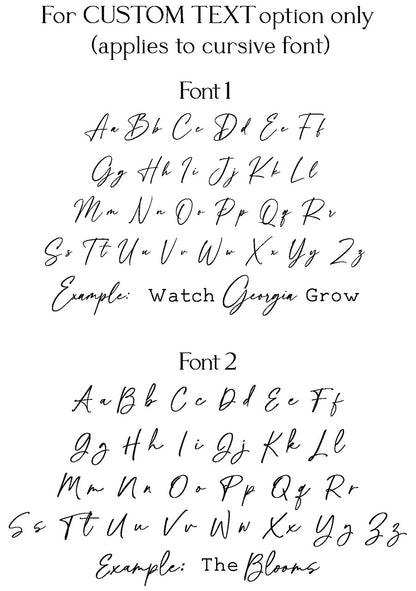 For CUSTOM TEXT option only
(applies to cursive font)
Font 1
Aa Bb Cc Dd Ee Ff
Gg Hh Ii Jj Kk Ll
Mm Nn Oo Pp Qq Rr
Ss Tt Uu Vv Ww Xx Yy Zz
Example: Watch Georgia Grow
Font 2
Aa Bb Cc Dd Ee Ff
Gg Hh Ii Jj Kk Ll
Mm Nn Oo Pp Qq Rr
Ss Tt Uu Vv Ww Xx Yy Zz
Example: The Blooms